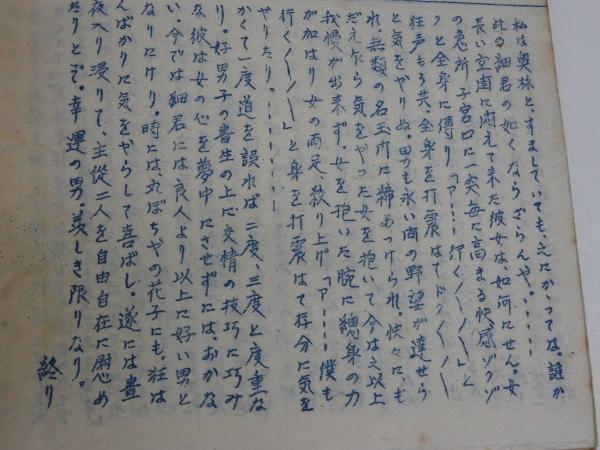 私は奥様と、すましていてもえにかゝつては。誰か
此の細君の如くならざらんや。、、、、
長い空閨に悶えて来た彼女は、如何にせん。女
の急所子宮口に一突毎に高まる快感ゾクゾ
クと全身に傳り「ア‥‥行く〱〱」と
狂声もろ共、全身を打震はてドク〱〱
と気をやりぬ。男も永い間の野望が達せら
れ。無類の名玉門に締めつけられ。快々に、も
だえ乍ら気をやつた女を抱いて今はえ以上
我慢が出来ず、女を抱いた腕に總身の力
が加はり女の両足、絞り上げ「ア‥‥僕も
行く〱〱〱」と身を打震はて存分に気を
やりたり。‥‥‥‥
かくて一度道を誤れば二度、三度と度重な
り。好男子の書生の上に交情の技巧に巧み
な彼は女の心を夢中にさせずには、おかな
い。今では細君には良人より以上に好い男と
なりにけり。時には、丸ぽちやの花子にも。狂は
んばかりに気をやらして喜ばし。遂には晝
夜入り浸りて、主從二人を自由自在に慰め
たりとぞ。幸運の男。羨しき限りなり。
終り